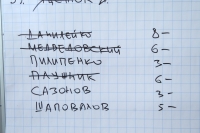 ДАНИЛЕЙКО 8 –
МЕДВЕДОВСКИЙ 6 –
ПИЛИПЕНКО 3 –
ПАУЧНИК 6 –
САЗОНОВ 3 –
ШАПОВАЛОВ 5 –